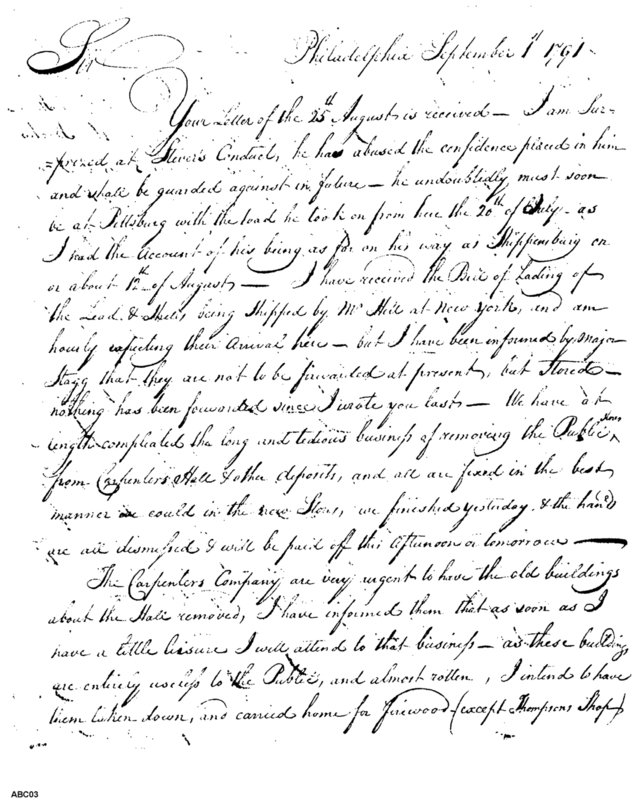 Sir Philadelphia September 1st 1791.
Your Letter of the 25th August is received — I am Sur-
=prized at Slever's Conduct, he has abused the confidence placed in him
and shall be guarded against in future — he undoubtedly must soon
be at Pittsburg with the load he took on from here the 20th of July - as
I had the Account of his being as far on his way as Shippensburg on
or about 12th of August — I have received the Bill of Lading of
the Lead & Shells being Shipped by Mr Hill at New York, and am
hourly expecting their Arrival here — but I have been informed by Major
Stagg that they are not to be forwarded at present, but stored —
nothing has been forwarded since I wrote you last — We have at
length compleated the long and tedious business of removing the Public Stores
from Carpenters Hall & other deposits, and all are fixed in the best
manner we could in the new Stores, we finished yesterday & the hands
are all dismissed & will be paid off this afternoon or tomorrow —
The Carpenters Company are very urgent to have the old buildings
about the Hall removed, I have informed them that as soon as I
have a little leisure I will attend to that business — as these buildings
are entirely useless to the Public, and almost rotten, I intend to have
them taken down, and carried home for firewood — (except Thompsons Shop)
ABC03